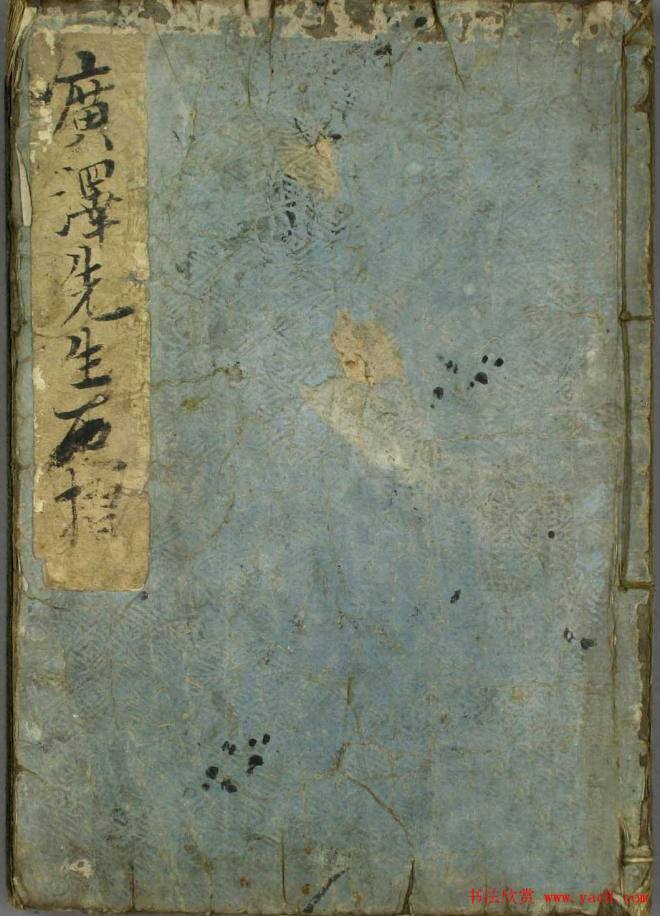 廣澤先生石摺
书法欣赏 www.yac8.com